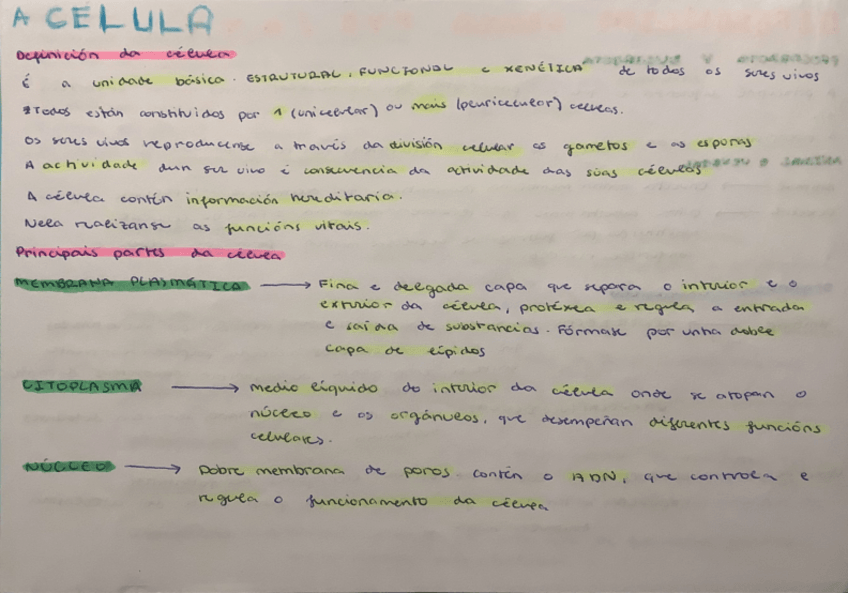 A CÉLULA
Definición da célula
É a unidade básica. ESTRUTURAL, FUNCIONAL e XENÉTICA de todos os seres vivos
*Todos están constituidos por 1 (unicelular) ou mais (pluricelular) células.
Os seres vivos reprodúcense a través da división celular os gametos e as esporas
A actividade dun ser vivo é consecuencia da actividade das súas células
A célula contén información hereditaria.
Nela realízanse as funcións vitais.
Principais partes da célula
MEMBRANA PLASMÁTICA → Fina e delgada capa que separa o interior e o
exterior da célula, protéxea e regula a entrada
e saída de substancias. Fórmase por unha dobre
capa de lípidos
CITOPLASMA → Medio líquido do interior da célula onde se atopan o
núcleo e os orgánulos, que desempeñan diferentes funcións
celulares.
NÚCLEO → Dobre membrana de poros contén o ADN, que controla e
regula o funcionamento da célula